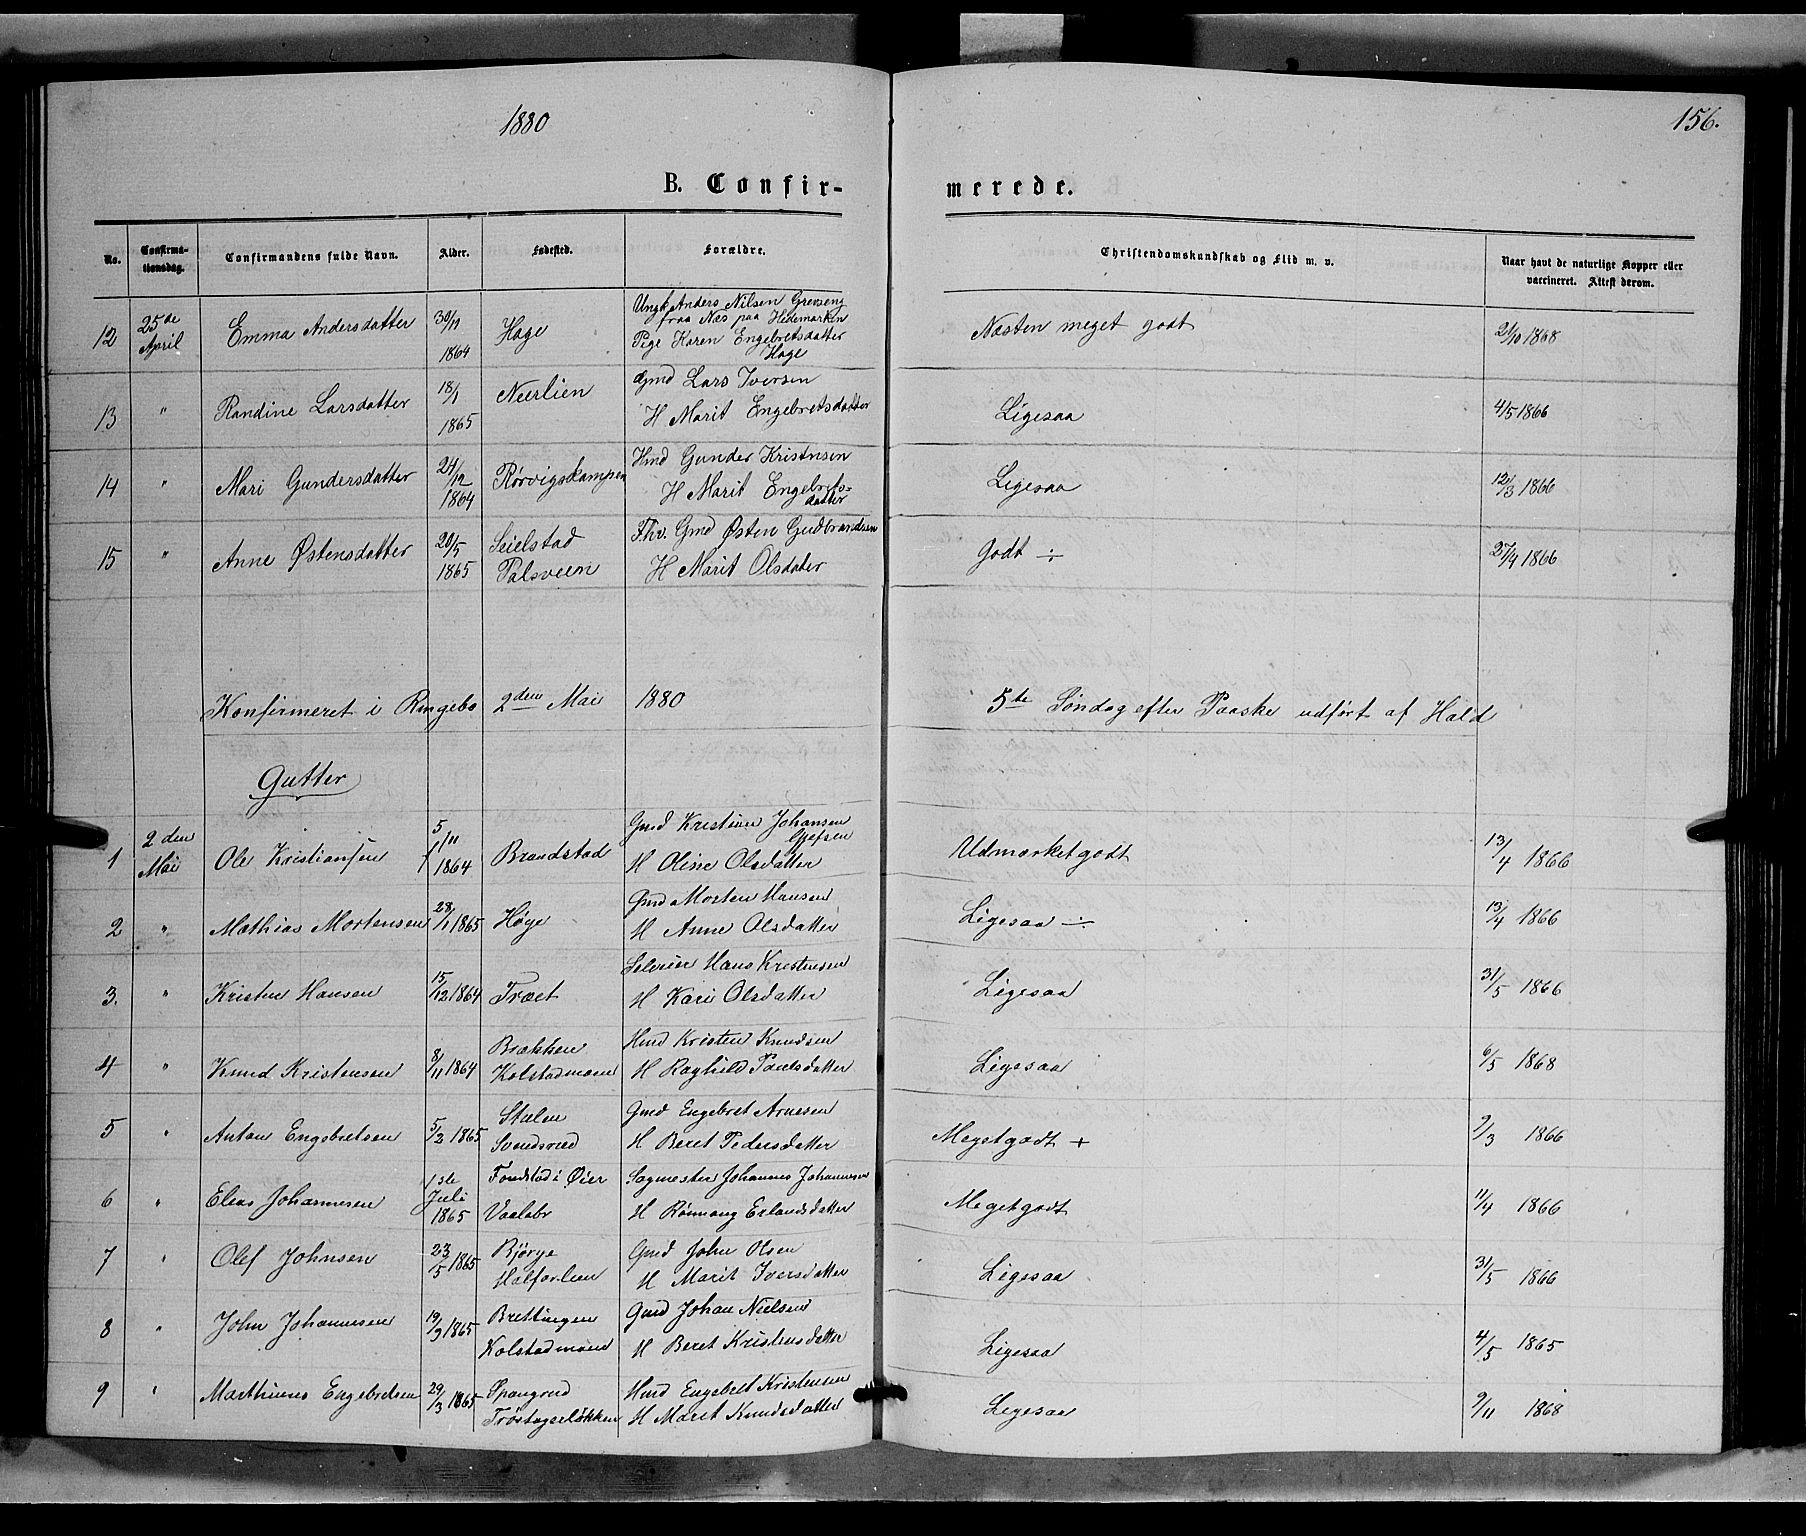 1880
156.
B. Confir-
merede.
No.
Confirma-
tionsdag.
Confirmandens fulde Navn.
Alder.
Fødested.
Forældre.
Christendomskundskab og Flid m. v.
Naar havt de naturlige Kopper eller
vaccineret. Attest derom.
12 25de April Emma Andersdatter 30/11 1864 Hage Ungk Anders Nilsen
fraa Næs paa Hedemarken
Pige Karen Engebretsdatter
Hage
Næsten meget godt 21/10 1868
13 " Randine Larsdatter 18/1 1865 Nærlien Gmd Lars Iversen
H Marit Engebretsdatter
Ligesaa 4/5 1866
14 " Mari Gundersdatter 24/12 1864 Rørvigskampen Hmd Gunder Kristnsen
H Marit Engebrets-
datter
Ligesaa 12/3 1866
15 " Anne Østensdatter 20/5 1865 Seielstad
Palsveen
Fhv. Gmd Østen Gudbrandsen
H Marit Olsdater
Godt ÷ 27/4 1866
Konfirmeret i Ringebo 2den Mai 1880 5te Søndag efter Paaske udført af Hald
Gutter
1 2den Mai Ole Kristiansen 5/11 1864 Brandstad Gmd Kristian Johansen
H Oline Olsdatter
Udmærket godt 13/4 1866
2 " Mathias Mortensen 28/1 1865 Høge Gmd Morten Hansen
H Anne Olsdatter
Ligesaa ÷ 13/4 1866
3. " Kristen Hansen 15/12 1864 Træet Selveier Hans Kristensen
H Kari Olsdatter
Ligesaa 31/5 1866
4 " Knud Kristensen 8/11 1864 Brækken
Kolstadmoen
Hmd Kristen Knudsen
H Raghild Paulsdatter
Ligesaa 6/5 1868
5 " Anton Engebretsen 5/2 1865 Stalen
Svendsrud
Gmd Engebret Arnesen
H Beret Pedersdatter
Meget godt + 9/3 1866
6 " Elias Johannesen 1ste Juli 1865 Fondstad i Øier
Vaalebr
Sagmester Johannes Johannesen
H Rønnaug Erlandsdatter
Meget godt 11/4 1866
7 " Olef Johnsen 23/5 1865 Bjørge
Halforlien
Gmd John Olsen
H Marit Iversdatter
Ligesaa 31/5 1866
8 " John Johannesen 19/9 1865 Brettingen
Kolstadmoen
Gmd Johan Nielsen
H Beret Kristensdatter
Ligesaa 4/5 1865
9 " Marthinus Engebretsen 29/3 1865 Spangrud
Trøstagerløkken
Hmd Engebret Kristensen
H Marit Knudsdatter
Ligesaa 9/11 1868